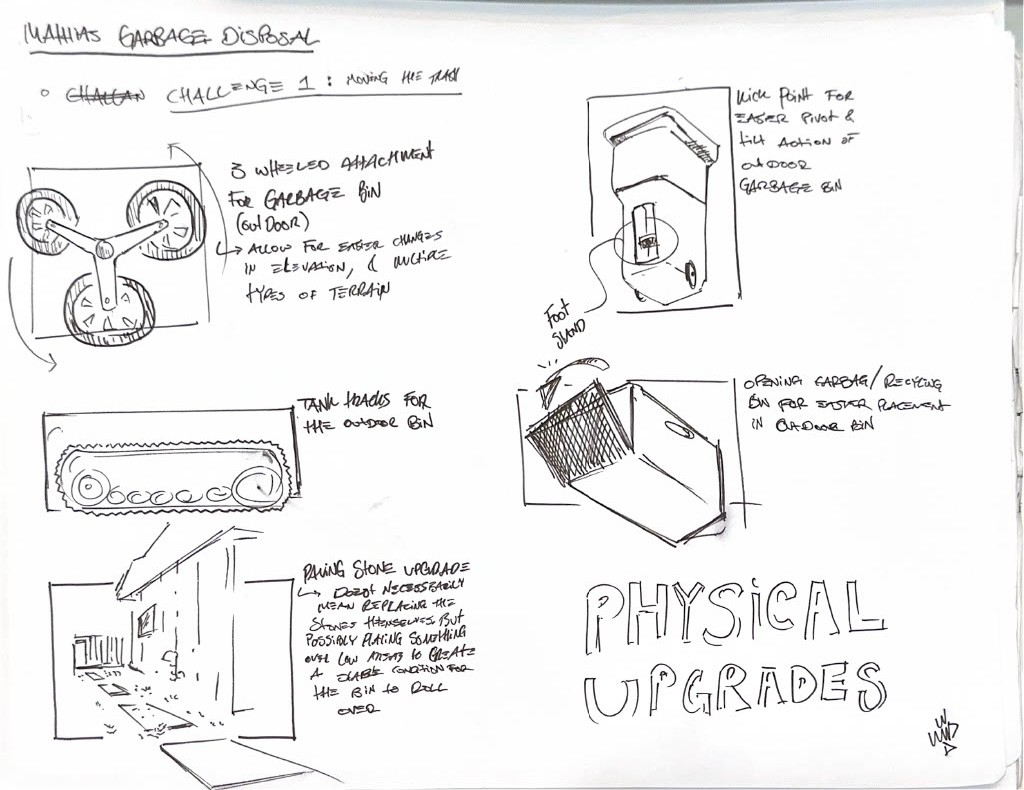 MATHIAS GARBAGE DISPOSAL
CHALLENGE 1 : MOVING THE TRASH
3 WHEELED ATTACHMENT
FOR GARBAGE BIN
(OUTDOOR)
ALLOW FOR EASIER CHANGES
IN ELEVATION, & MULTIPLE
TYPES OF TERRAIN
TANK TRACKS FOR
THE OUTDOOR BIN
PAVING STONE UPGRADE
NECESSARILY
MEAN REPLACING THE
STONES THEMSELVES, BUT
POSSIBLY PLACING SOMETHING
OVER LOW AREAS TO CREATE
A CONDITION FOR
THE BIN TO ROLL
OVER
KICK POINT FOR
EASIER PIVOT &
TILT ACTION OF
OUTDOOR
GARBAGE BIN
FOOT
STAND
OPENING GARBAG/RECYCLING
BIN FOR EASIER PLACEMENT
IN OUTDOOR BIN
PHYSICAL
UPGRADES